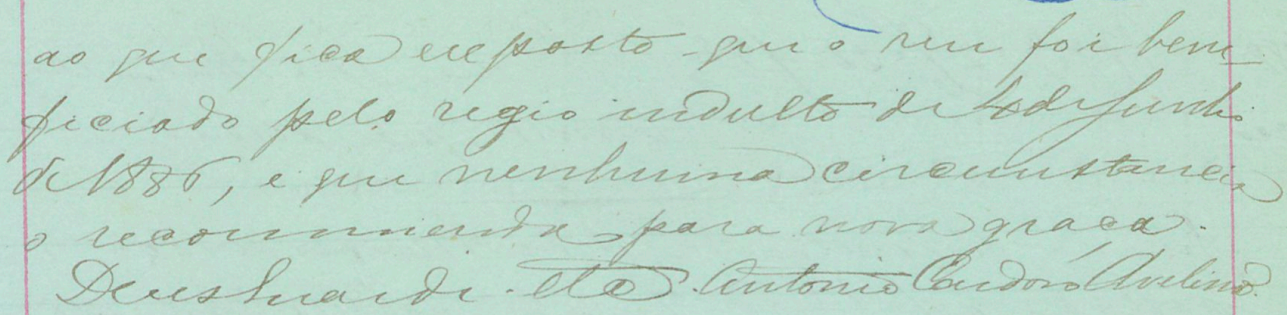 ao que fica exposto que o reu foi bene-
ficiado pelo regio indulto de 4 de Junho
de 1886, e que nenhuma circumstancia
o recommenda para nova graça.
Deus Guarde etc. Antonio Candoso Avelino.